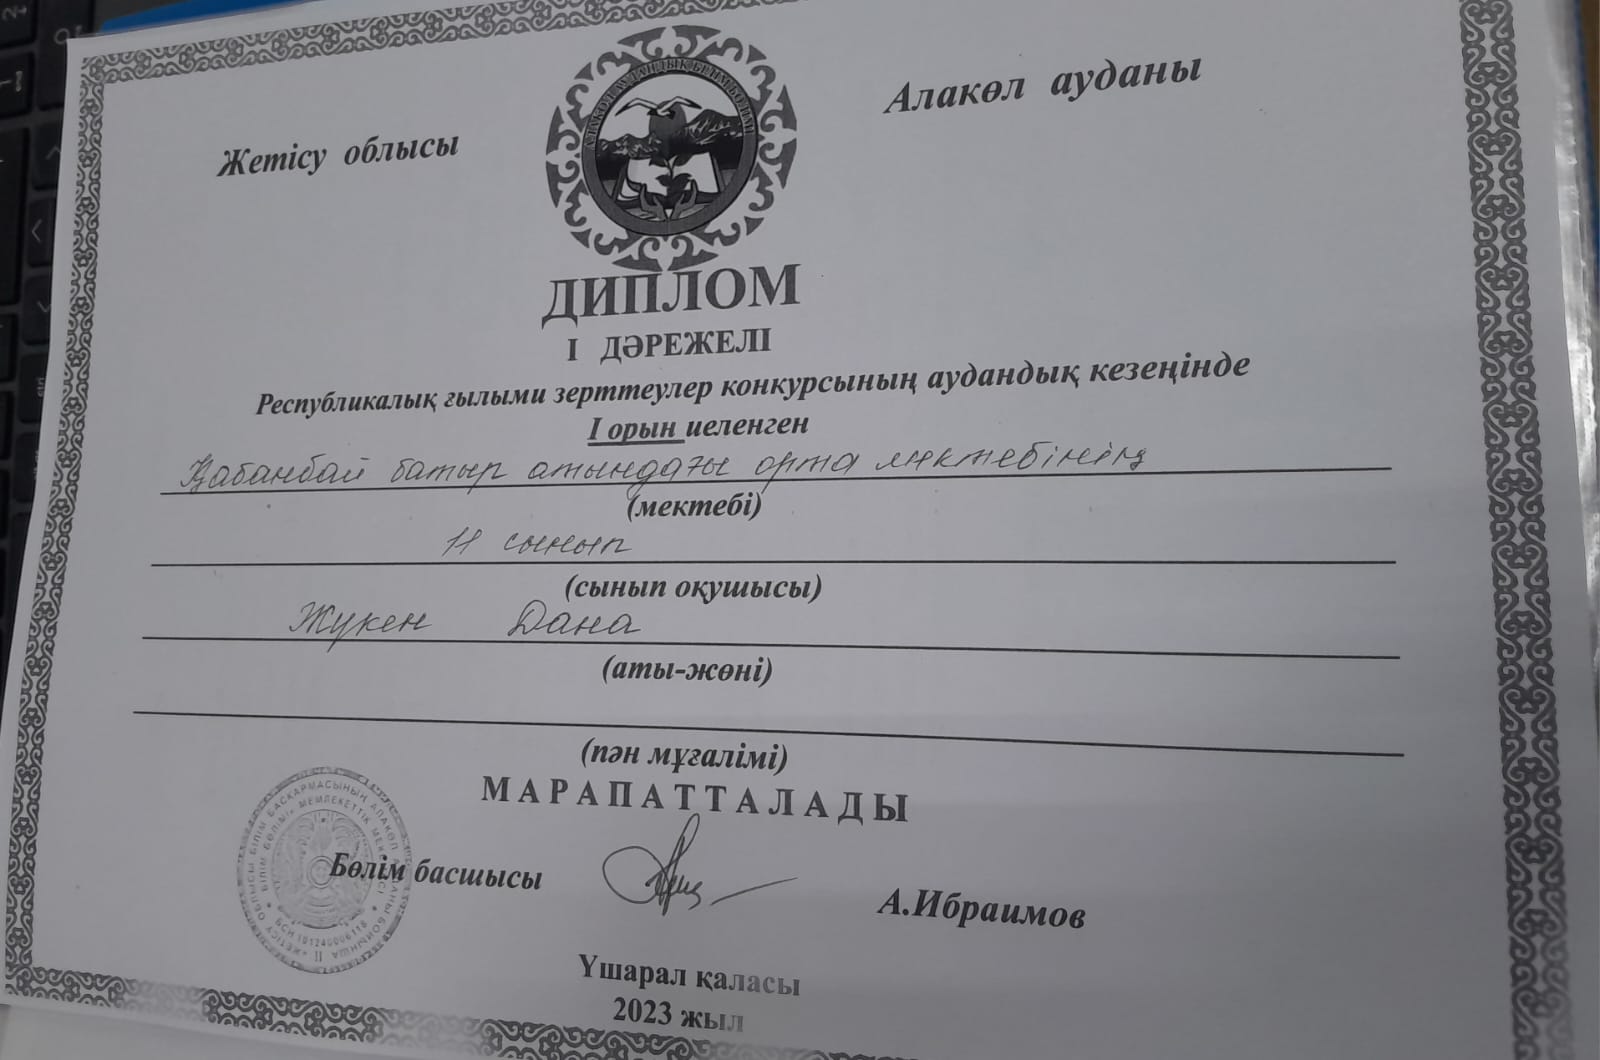 Жетісу облысы
Алакөл ауданы
АЛАКӨЛ АУДАНДЫҚ БІЛІМ БӨЛІМІ
ДИПЛОМ
І ДӘРЕЖЕЛІ
Республикалық ғылыми зерттеулер конкурсының аудандық кезеңінде
І орын иеленген
Қабанбай батыр атындағы орта мектебінің
(мектебі)
11 сынып
(сынып оқушысы)
Жүкен Дана
(аты-жөні)
(пән мұғалімі)
МАРАПАТТАЛАДЫ
Бөлім басшысы
А.Ибраимов
БІЛІМ БАСҚАРМАСЫНЫҢ АЛАКӨЛ АУДАНЫ БОЙЫНША
БІЛІМ БӨЛІМІ МЕМЛЕКЕТТІК
Үшарал қаласы
2023 жыл